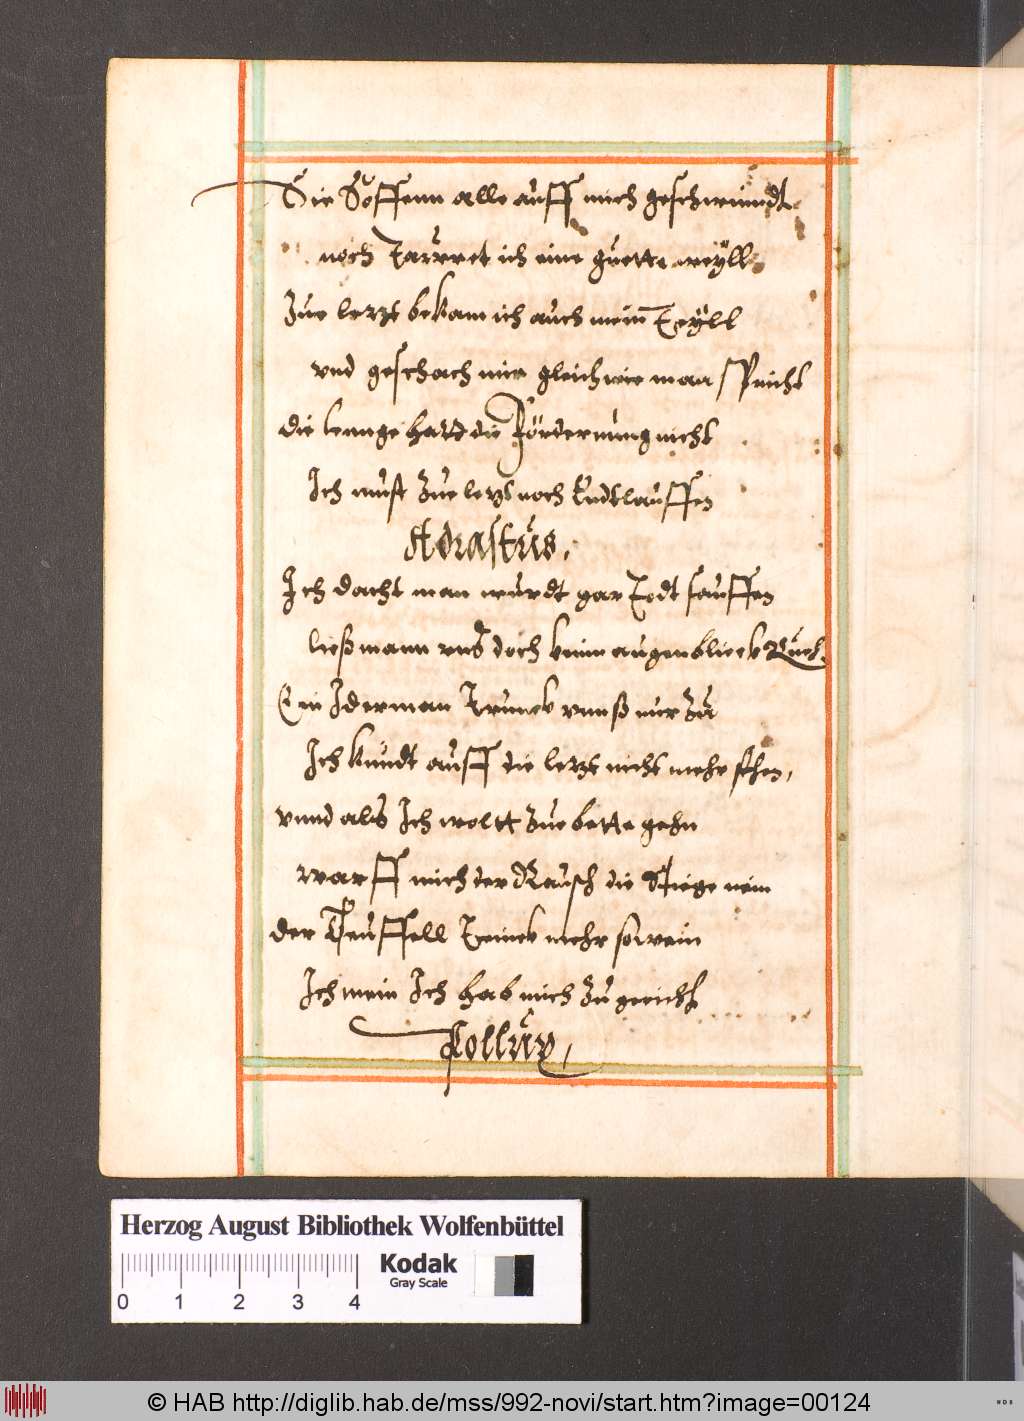 Sie Soffenn alle auff mich geschwiundt
noch Tauret ich eine guette weÿll
Zue letzt bekam ich auch mein Teÿll
vnd geschach mir gleich wie man Spricht
die lennge hatt die Fördernung nicht
Ich must Zue letzt noch Endtlauffen
Adrastus.
Ich dacht man wurdt gar Todt sauffen
ließ mann vns doch kein augenblieck Rueh
Ein Iderman Trunck vnnß nur Zu
Ich kundt auff die letzt nicht mehr sthen,
vnnd als Ich woltt Zue bette gehn
warff mich der Rausch die Stiege nein
der Teuffell Trinck mehr so wein
Ich mein Ich hab mich Zu gericht
Pollux,
Herzog August Bibliothek Wolfenbüttel
Kodak
Gray Scale
0 1 2 3 4
© HAB http://diglib.hab.de/mss/992-novi/start.htm?image=00124